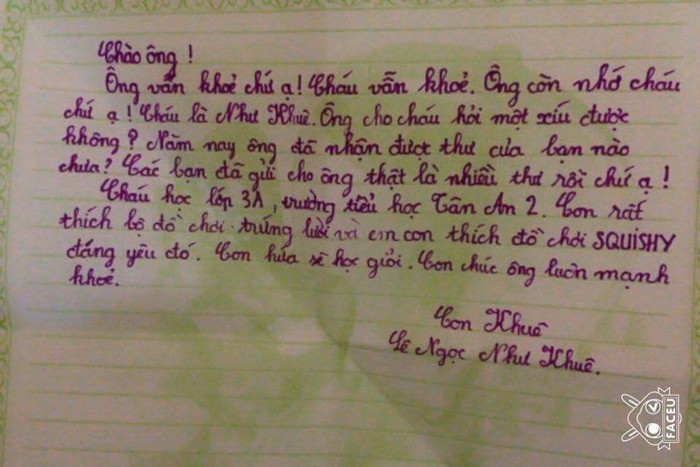 Chào ông !
Ông vẫn khoẻ chứ ạ! Cháu vẫn khoẻ. Ông còn nhớ cháu
chứ ạ! Cháu là Như Khuê. Ông cho cháu hỏi một xíu được
không? Năm nay ông đã nhận được thư của bạn nào
chưa? Các bạn đã gửi cho ông thật là nhiều thư rồi chứ ạ!
Cháu học lớp 3A, trường tiểu học Tân An 2. Con rất
thích bộ đồ chơi trứng lười và em con thích đồ chơi SQUiSHY
đáng yêu đó. Con hứa sẽ học giỏi. Con chúc ông luôn mạnh
khoẻ.
Con Khuê
Lê Ngọc Như Khuê.
FACEU